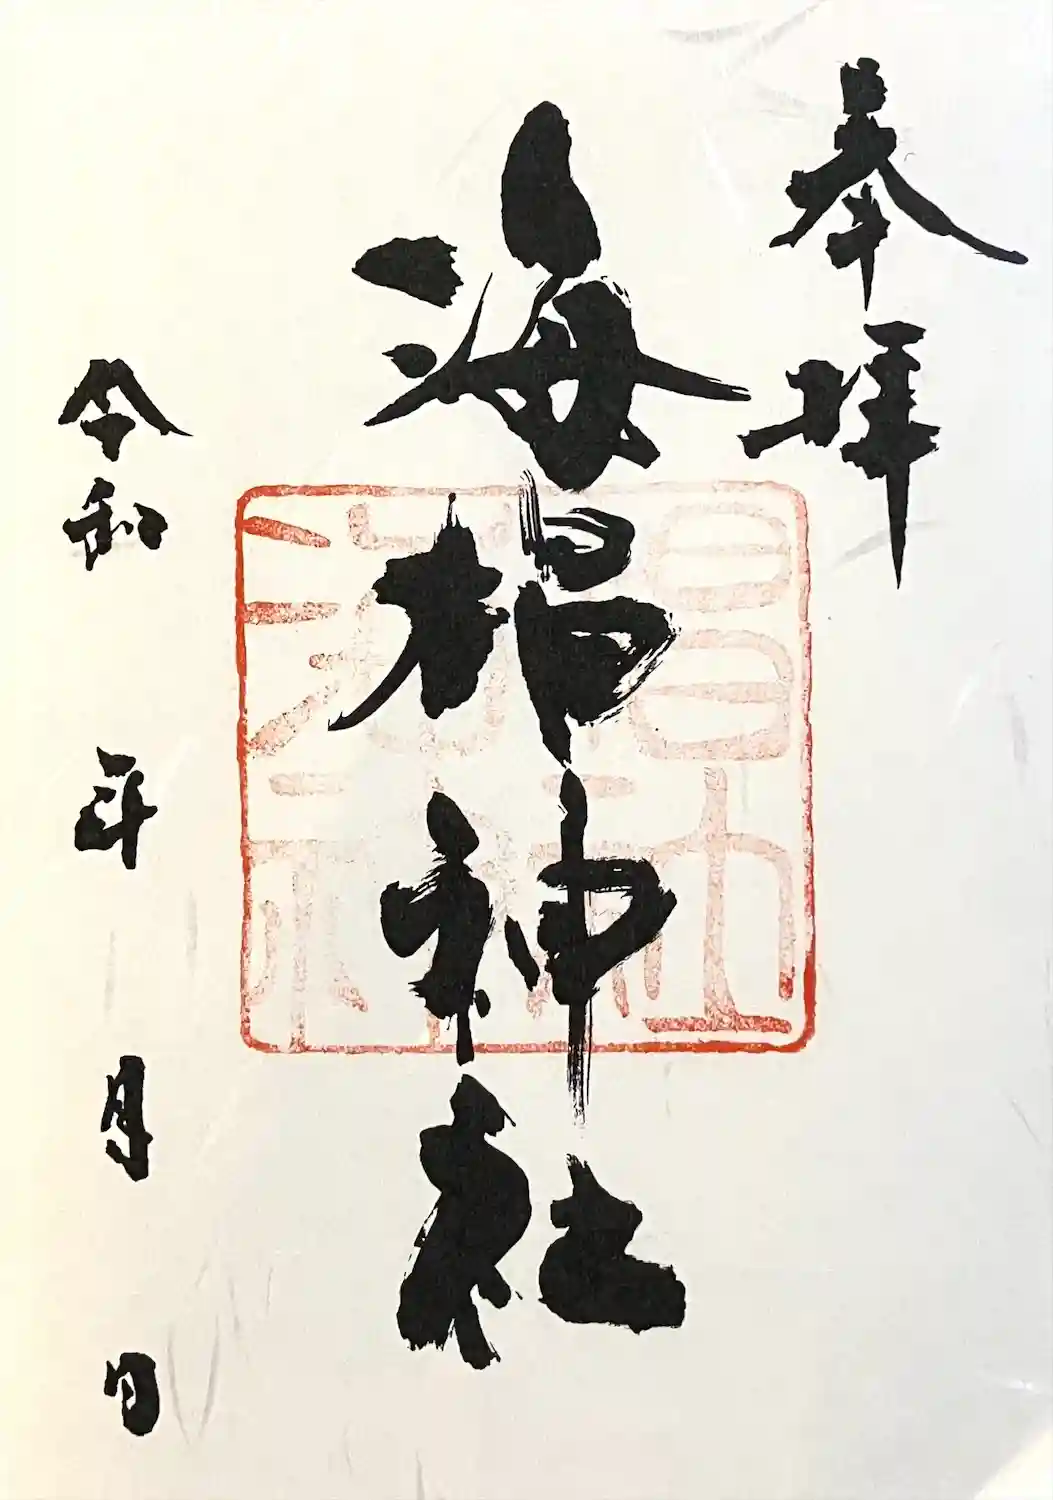 奉拝
海椙神社
令和 年 月 日